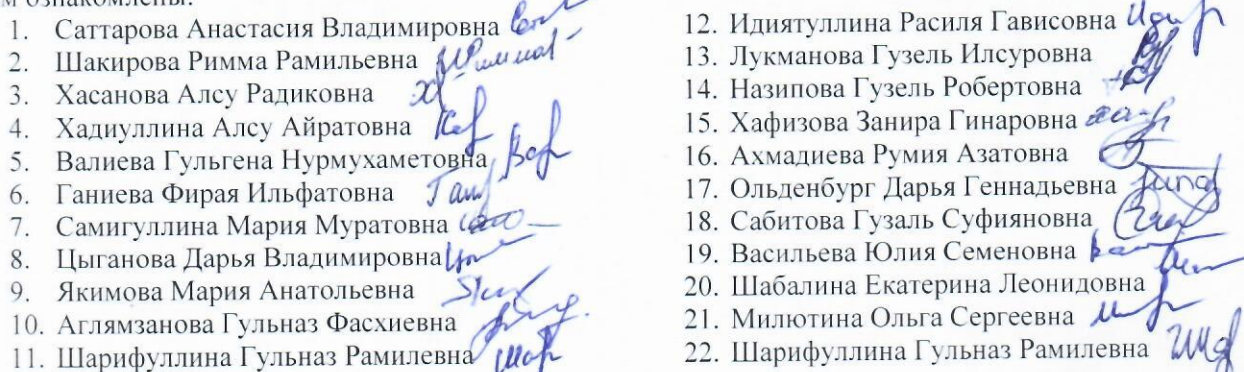 м ознакомлены:
1. Саттарова Анастасия Владимировна
2. Шакирова Римма Рамильевна
3. Хасанова Алсу Радиковна
4. Хадиуллина Алсу Айратовна
5. Валиева Гульгена Нурмухаметовна
6. Ганиева Фирая Ильфатовна
7. Самигуллина Мария Муратовна
8. Цыганова Дарья Владимировна
9. Якимова Мария Анатольевна
10. Аглямзанова Гульназ Фасхиевна
11. Шарифуллина Гульназ Рамилевна
12. Идиятуллина Расиля Гависовна
13. Лукманова Гузель Илсуровна
14. Назипова Гузель Робертовна
15. Хафизова Занира Гинаровна
16. Ахмадиева Румия Азатовна
17. Ольденбург Дарья Геннадьевна
18. Сабитова Гузаль Суфияновна
19. Васильева Юлия Семеновна
20. Шабалина Екатерина Леонидовна
21. Милютина Ольга Сергеевна
22. Шарифуллина Гульназ Рамилевна